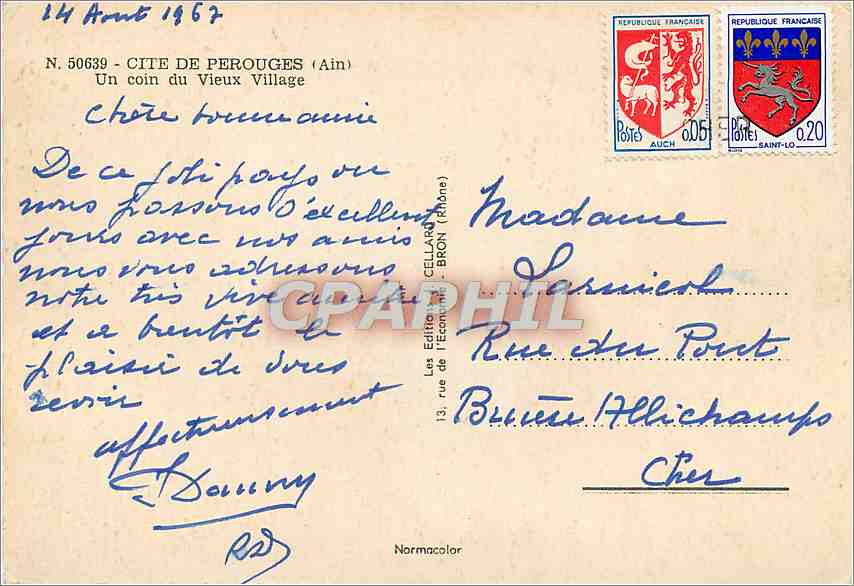 14 Aout 1967
N. 50639 - CITE DE PEROUGES (Ain)
Un coin du Vieux Village
Chère bonne amie
De ce joli pays ou
nous passons d'excellent
jours avec nos amis
nous vous adressons
notre très vive amitié
et a bientôt le
plaisir de vous
revoir
affectueusement
Normacolor
Les Editions CELLARD
13, rue de l'Economie - BRON (Rhône)
REPUBLIQUE FRANÇAISE
POSTES 0,05
AUCH
REPUBLIQUE FRANÇAISE
POSTES 0,20
SAINT-LO
Madame
Larnicol
Rue du Pont
Bruère Allichamps
Cher
CPAPHIL